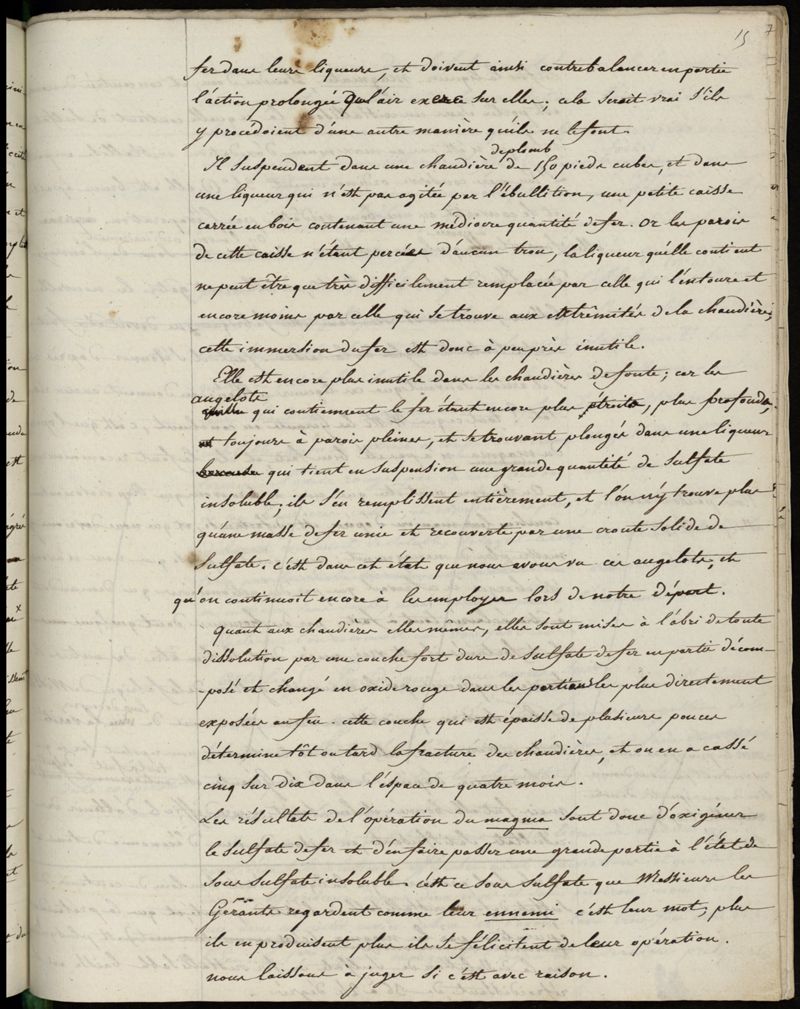 15 7
fer dans leurs liqueurs, et doivent ainsi contrebalancer en partie
l'action prolongée que l'air exerce sur elles; cela seroit vrai s'ils
y procédoient d'une autre manière qu'ils ne le font.
de plomb
Il suspendent dans une chaudière de 150 pieds cubes, et dans
une liqueur qui n'est pas agitée par l'ébullition, une petite caisse
carrée en bois contenant une médiocre quantité de fer. Or les parois
de cette caisse n'étant percées d'aucun trou, la liqueur qu'elle contient
ne peut être que très difficilement remplacée par celle qui l'entoure et
encore moins par celle qui se trouve aux extrêmités de la chaudière;
cette immersion du fer est donc à peu près inutile.
Elle est encore plus inutile dans les chaudières de fonte; car les
augelots
qui contiennent le fer étant encore plus étroits, plus profonds,
et toujours à parois pleines, et se trouvant plongés dans une liqueur
qui tient en suspension une grande quantité de sulfate
insoluble, ils s'en remplissent entièrement, et l'on n'y trouve plus
qu'une masse de fer unie et recouverte par une croute solide de
sulfate. c'est dans cet état que nous avons vu ces augelots, et
qu'on continuoit encore à les employer lors de notre départ.
Quant aux chaudières elles mêmes, elles sont mises à l'abri de toute
dissolution par une couche fort dure de sulfate de fer en partie décom-
-posé et changé en oxide rouge dans les parties les plus directement
exposées au feu. cette couche qui est épaisse de plusieurs pouces
détermine tôt ou tard la fracture des chaudières, et on en a cassé
cinq sur dix dans l'éspace de quatre mois.
Les résultats de l'opération du magma sont donc d'oxigéner
le sulfate de fer et d'en faire passer une grande partie à l'état de
sous sulfate insoluble. c'est ce sous sulfate que Messieurs les
Gérants regardent comme leur ennemi c'est leur mot, plus
ils en produisent plus ils se félicitent de leur opération.
nous laissons à juger si c'est avec raison.